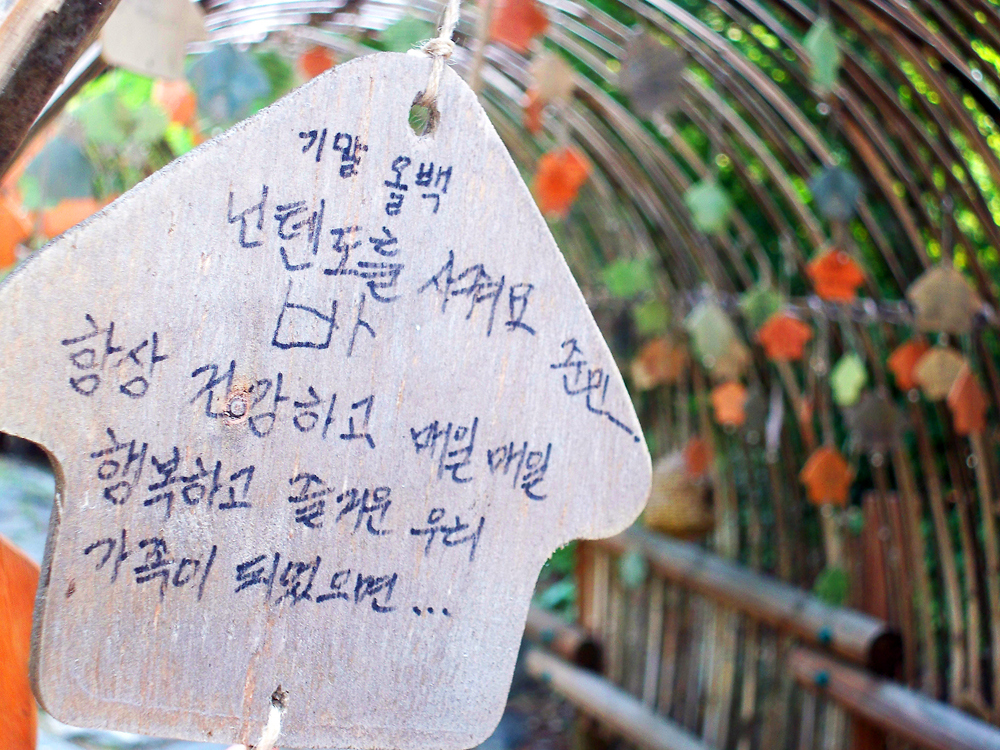 기말 올백
닌텐도를 사줘요
준민..
항상 건강하고 매일매일
행복하고 즐거운 우리
가족이 되었으면 ...